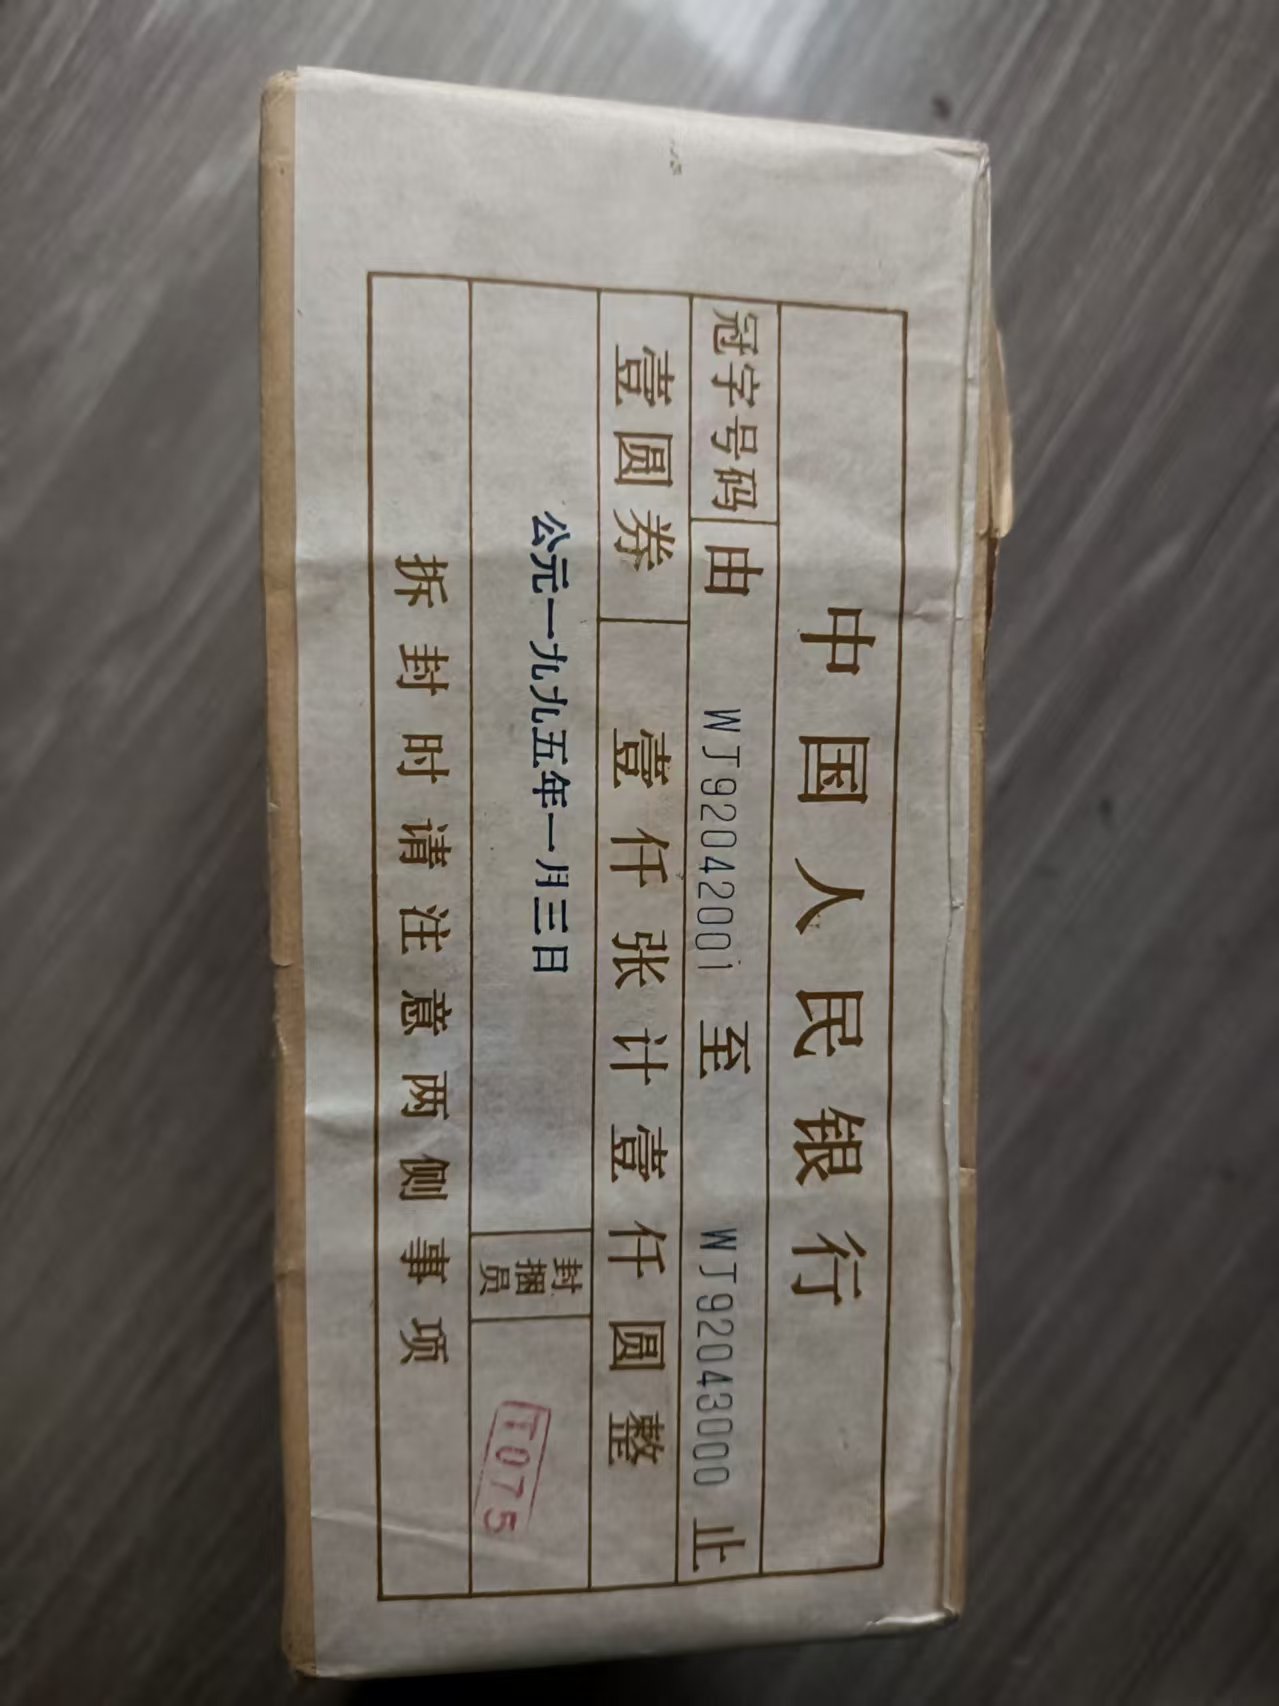 中国人民银行
冠字号码 由 WJ92042001 至 WJ92043000 止
壹圆券 壹仟张计壹仟圆整
公元一九九五年一月三日 封捆员 T075
拆封时请注意两侧事项